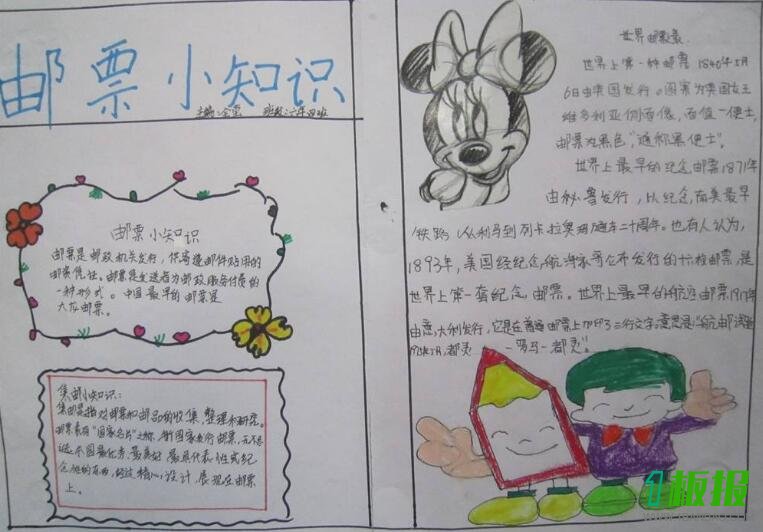 邮票小知识
主编:金雪 班级:六年四班
邮票小知识
邮票是邮政机关发行,供寄递邮件贴用的
邮资凭证。邮票是发送者为邮政服务付费的
一种形式。中国最早的邮票是
大龙邮票。
集邮小知识:
集邮是指对邮票和邮品的收集,整理和研究。
邮票素有"国家名片"之称,每个国家发行邮票,无不尽
选本国最优秀、最美好、最具代表性或纪
念性的东西,经过精心设计,展现在邮票
上。
世界邮票最
世界上第一种邮票1840年5月
6日由英国发行。图案为英国女王
维多利亚侧面像,面值一便士,
邮票为黑色,"通称黑便士"。
世界上最早的纪念邮票1871年
由秘鲁发行,以纪念南美最早
铁路
通车二十周年。也有人认为,
1893年,美国经纪念航海家哥仑布发行的十六枚邮票,是
世界上第一套纪念邮票。世界上最早的航空邮票1917年
由意大利发行,它是在普通邮票上加印了三行文字,意思是:"航邮试验
1917年5月,都灵——罗马—都灵"。
1板报